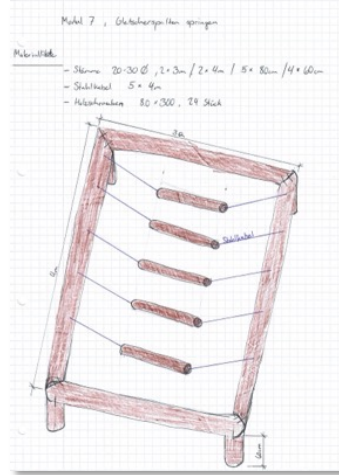 Modul 7, Gletscherspalten springen
Materialliste
- Stämme 20-30 Ø, 2 × 3m / 2 × 4m / 5 × 80cm / 4 × 60cm
- Stahlkabel 5 × 4m
- Holzschrauben 8.0 × 300, 24 Stück
Stahlkabel
60cm